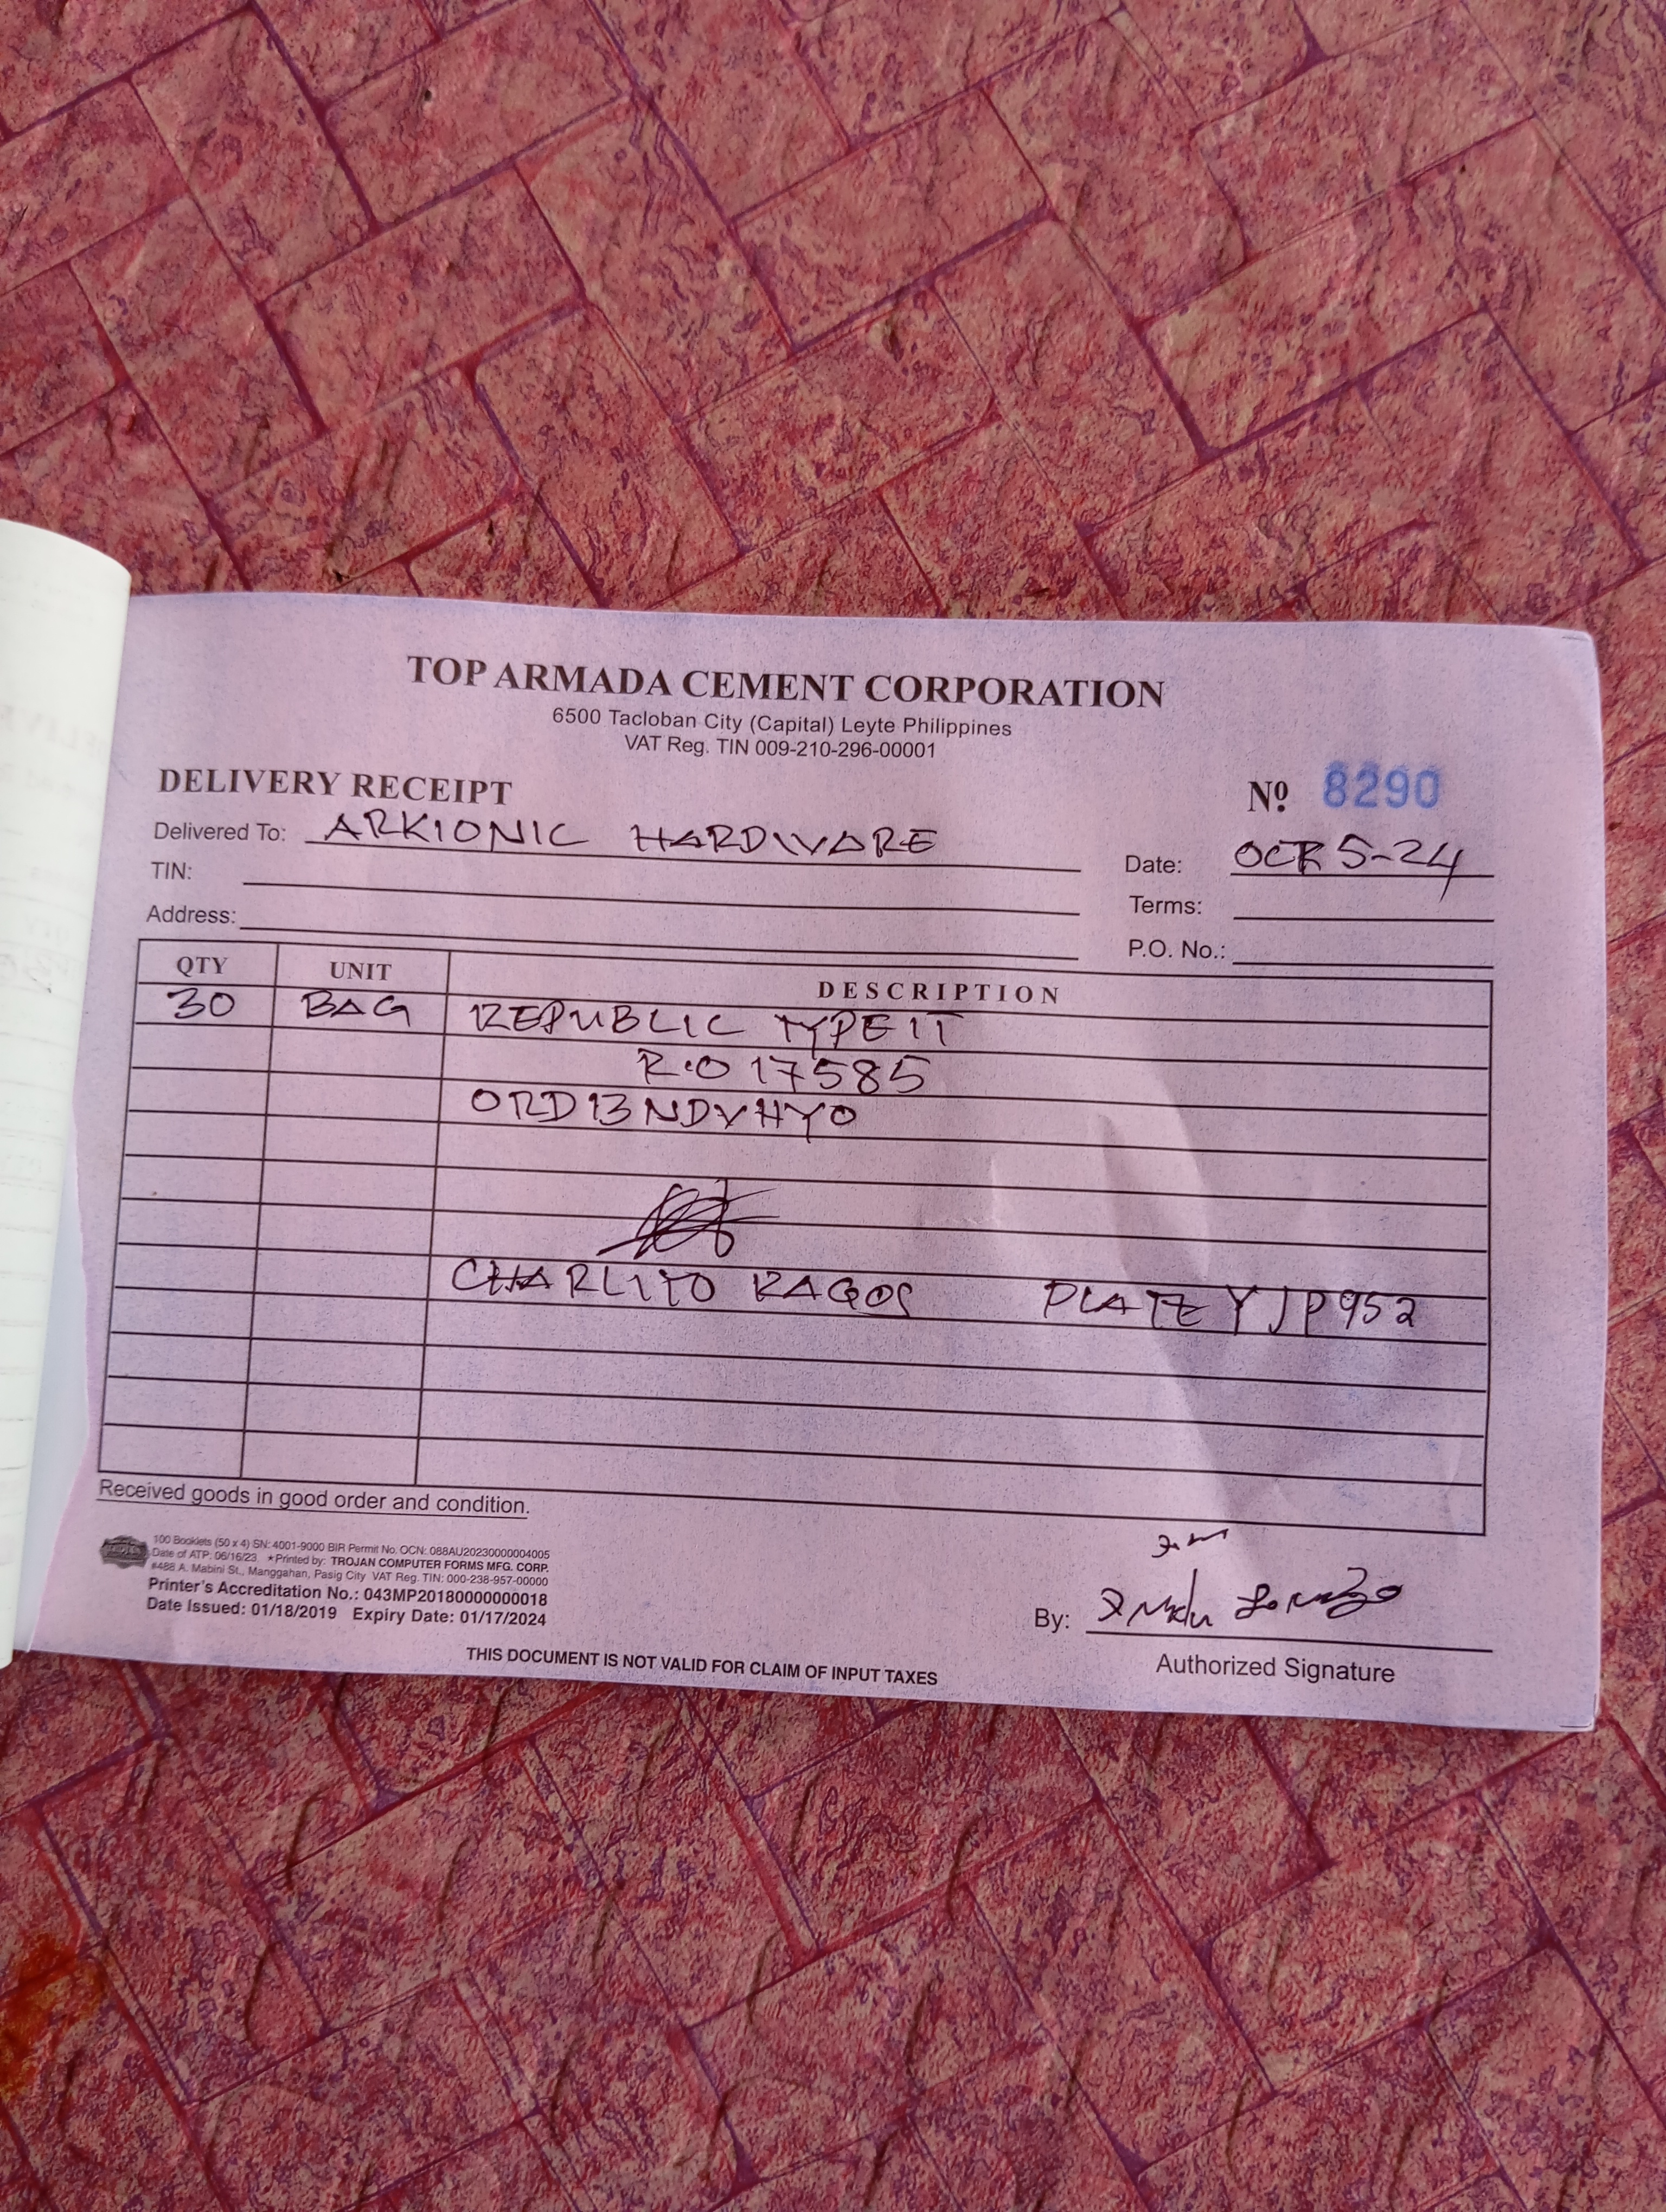 TOP ARMADA CEMENT CORPORATION
6500 Tacloban City (Capital) Leyte Philippines
VAT Reg. TIN 009-210-296-00001
DELIVERY RECEIPT
Nº 8290
Delivered To: ARKIONIC HARDWARE
Date: OCT 5-24
TIN:
Terms:
Address:
P.O. No.:
QTY UNIT DESCRIPTION
30 BAG REPUBLIC TYPE 1T
R.O 17585
ORD13NDVHYO
CHARLITO RAGOS PLATE YJP952
Received goods in good order and condition.
100 Booklets (50 x 4) SN: 4001-9000 BIR Permit No. OCN: 088AU20230000004005
Date of ATP: 06/16/23 ★Printed by: TROJAN COMPUTER FORMS MFG. CORP.
#488 A. Mabini St., Manggahan, Pasig City VAT Reg. TIN: 000-238-957-00000
Printer's Accreditation No.: 043MP20180000000018
Date Issued: 01/18/2019 Expiry Date: 01/17/2024
By:
Authorized Signature
THIS DOCUMENT IS NOT VALID FOR CLAIM OF INPUT TAXES